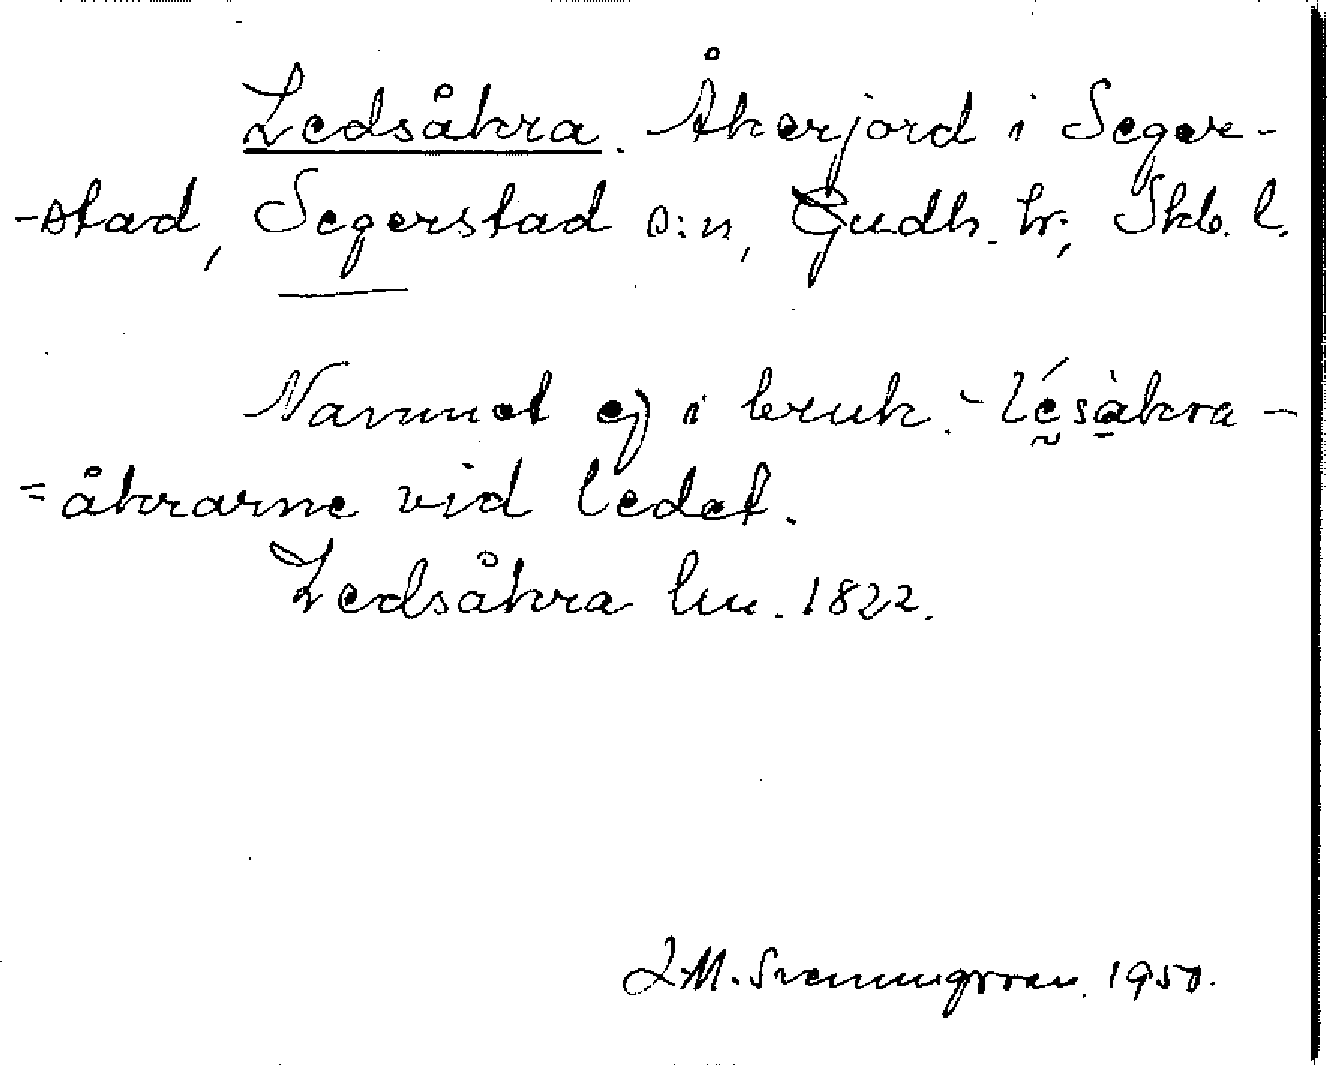 Ledsåkra. Åkerjord i Seger-
-stad, Segerstad s:n, Gudh. hr, Skb. l.
Namnet ej i bruk. - lésàkra -
= åkrarne vid ledet.
Ledsåkra lm. 1822.
1950.